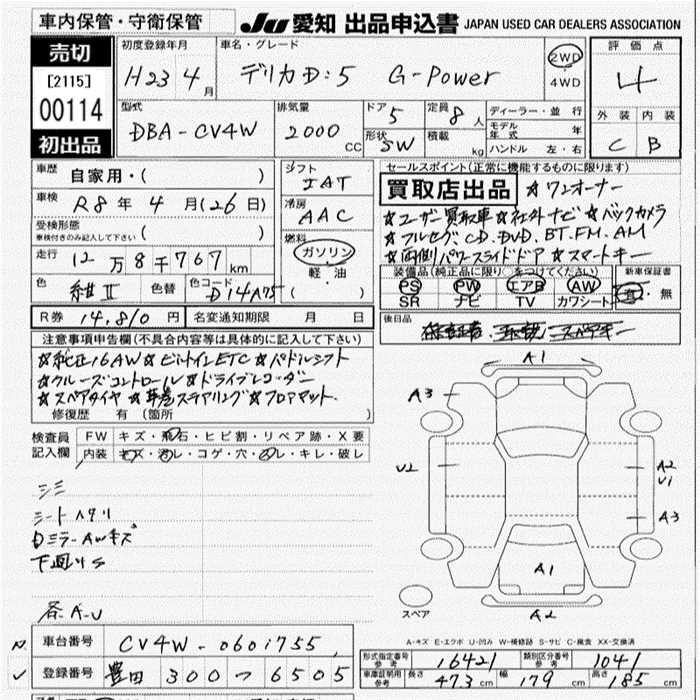 車内保管・守衛保管 JU 愛知 出品申込書 JAPAN USED CAR DEALERS ASSOCIATION
売切 初度登録年月 車名・グレード 評価点
[2115] H23 4月 デリカD:5 G-Power 2WD 4WD 4
00114 型式 排気量 ドア 5 定員 8人 ディーラー・並行 外装 内装
初出品 DBA-CV4W 2000 CC 形状 5W 積載 kg モデル年式 年 ハンドル 左・右 C B
車歴 自家用・( ) シフト IAT セールスポイント(正常に機能するものに限ります)
車検 R8年4月(26日) 冷房 AAC 買取店出品 ☆ワンオーナー
受検形態 車検付きのみ記入して下さい ( ) ☆ユーザー買取車☆社外ナビ☆バックカメラ
走行 12万8千767km 燃料 ガソリン 軽・油 ( ) ☆フルセグ.CD.DVD.BT.FM.AM
☆両側パワースライドドア☆スマートキー
色 紺II 色替 色コード D14A75 装備品(純正品に限り○をつけてください) 新車保証書
PS PW エアB AW 有・無
SR ナビ TV カワシート
R券 14,810円 名変通知期限 月 日 後日品 スペアキー
注意事項申告欄(不具合内容等は具体的に記入して下さい)
☆純正16AW☆ビルトインETC☆パドルシフト
☆クルーズコントロール☆ドライブレコーダー
☆スペアタイヤ☆革巻ステアリング☆フロアマット.
修復歴 有(箇所 )
検査員記入欄 FW キズ・飛石・ヒビ割・リペア跡・X要
内装 キズ・汚レ・コゲ・穴・スレ・キレ・破レ
A1
A3
U2 A2 U1
A3
A1
A2
スペア
シミ
シートハタリ
Dミラー AWキズ
下廻りS
各A-U
A-キズ E-エクボ U-凹み W-補修跡 S-サビ C-腐食 XX-交換済
車台番号 CV4W-0601755 形式指定番号 参考 16421 類別区分番号 参考 1041
登録番号 豊田 300 つ 6505 車庫証明用 参考 長さ 473cm 幅 179cm 高さ 185cm